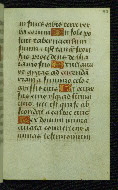 in fines orbis terre ver
ba eorum In sole po
suit tabernaculum
suum et ipse spon
sus procedens de tha
lamo suo Exultavit
ut gigas ad currenda
viam a summo celo e
gressio eius Et occur
sus eius ad summu
eius nec est qui se ab
scondat a calore eius
Lex domini imma
culata convertens a
nimas testimonium